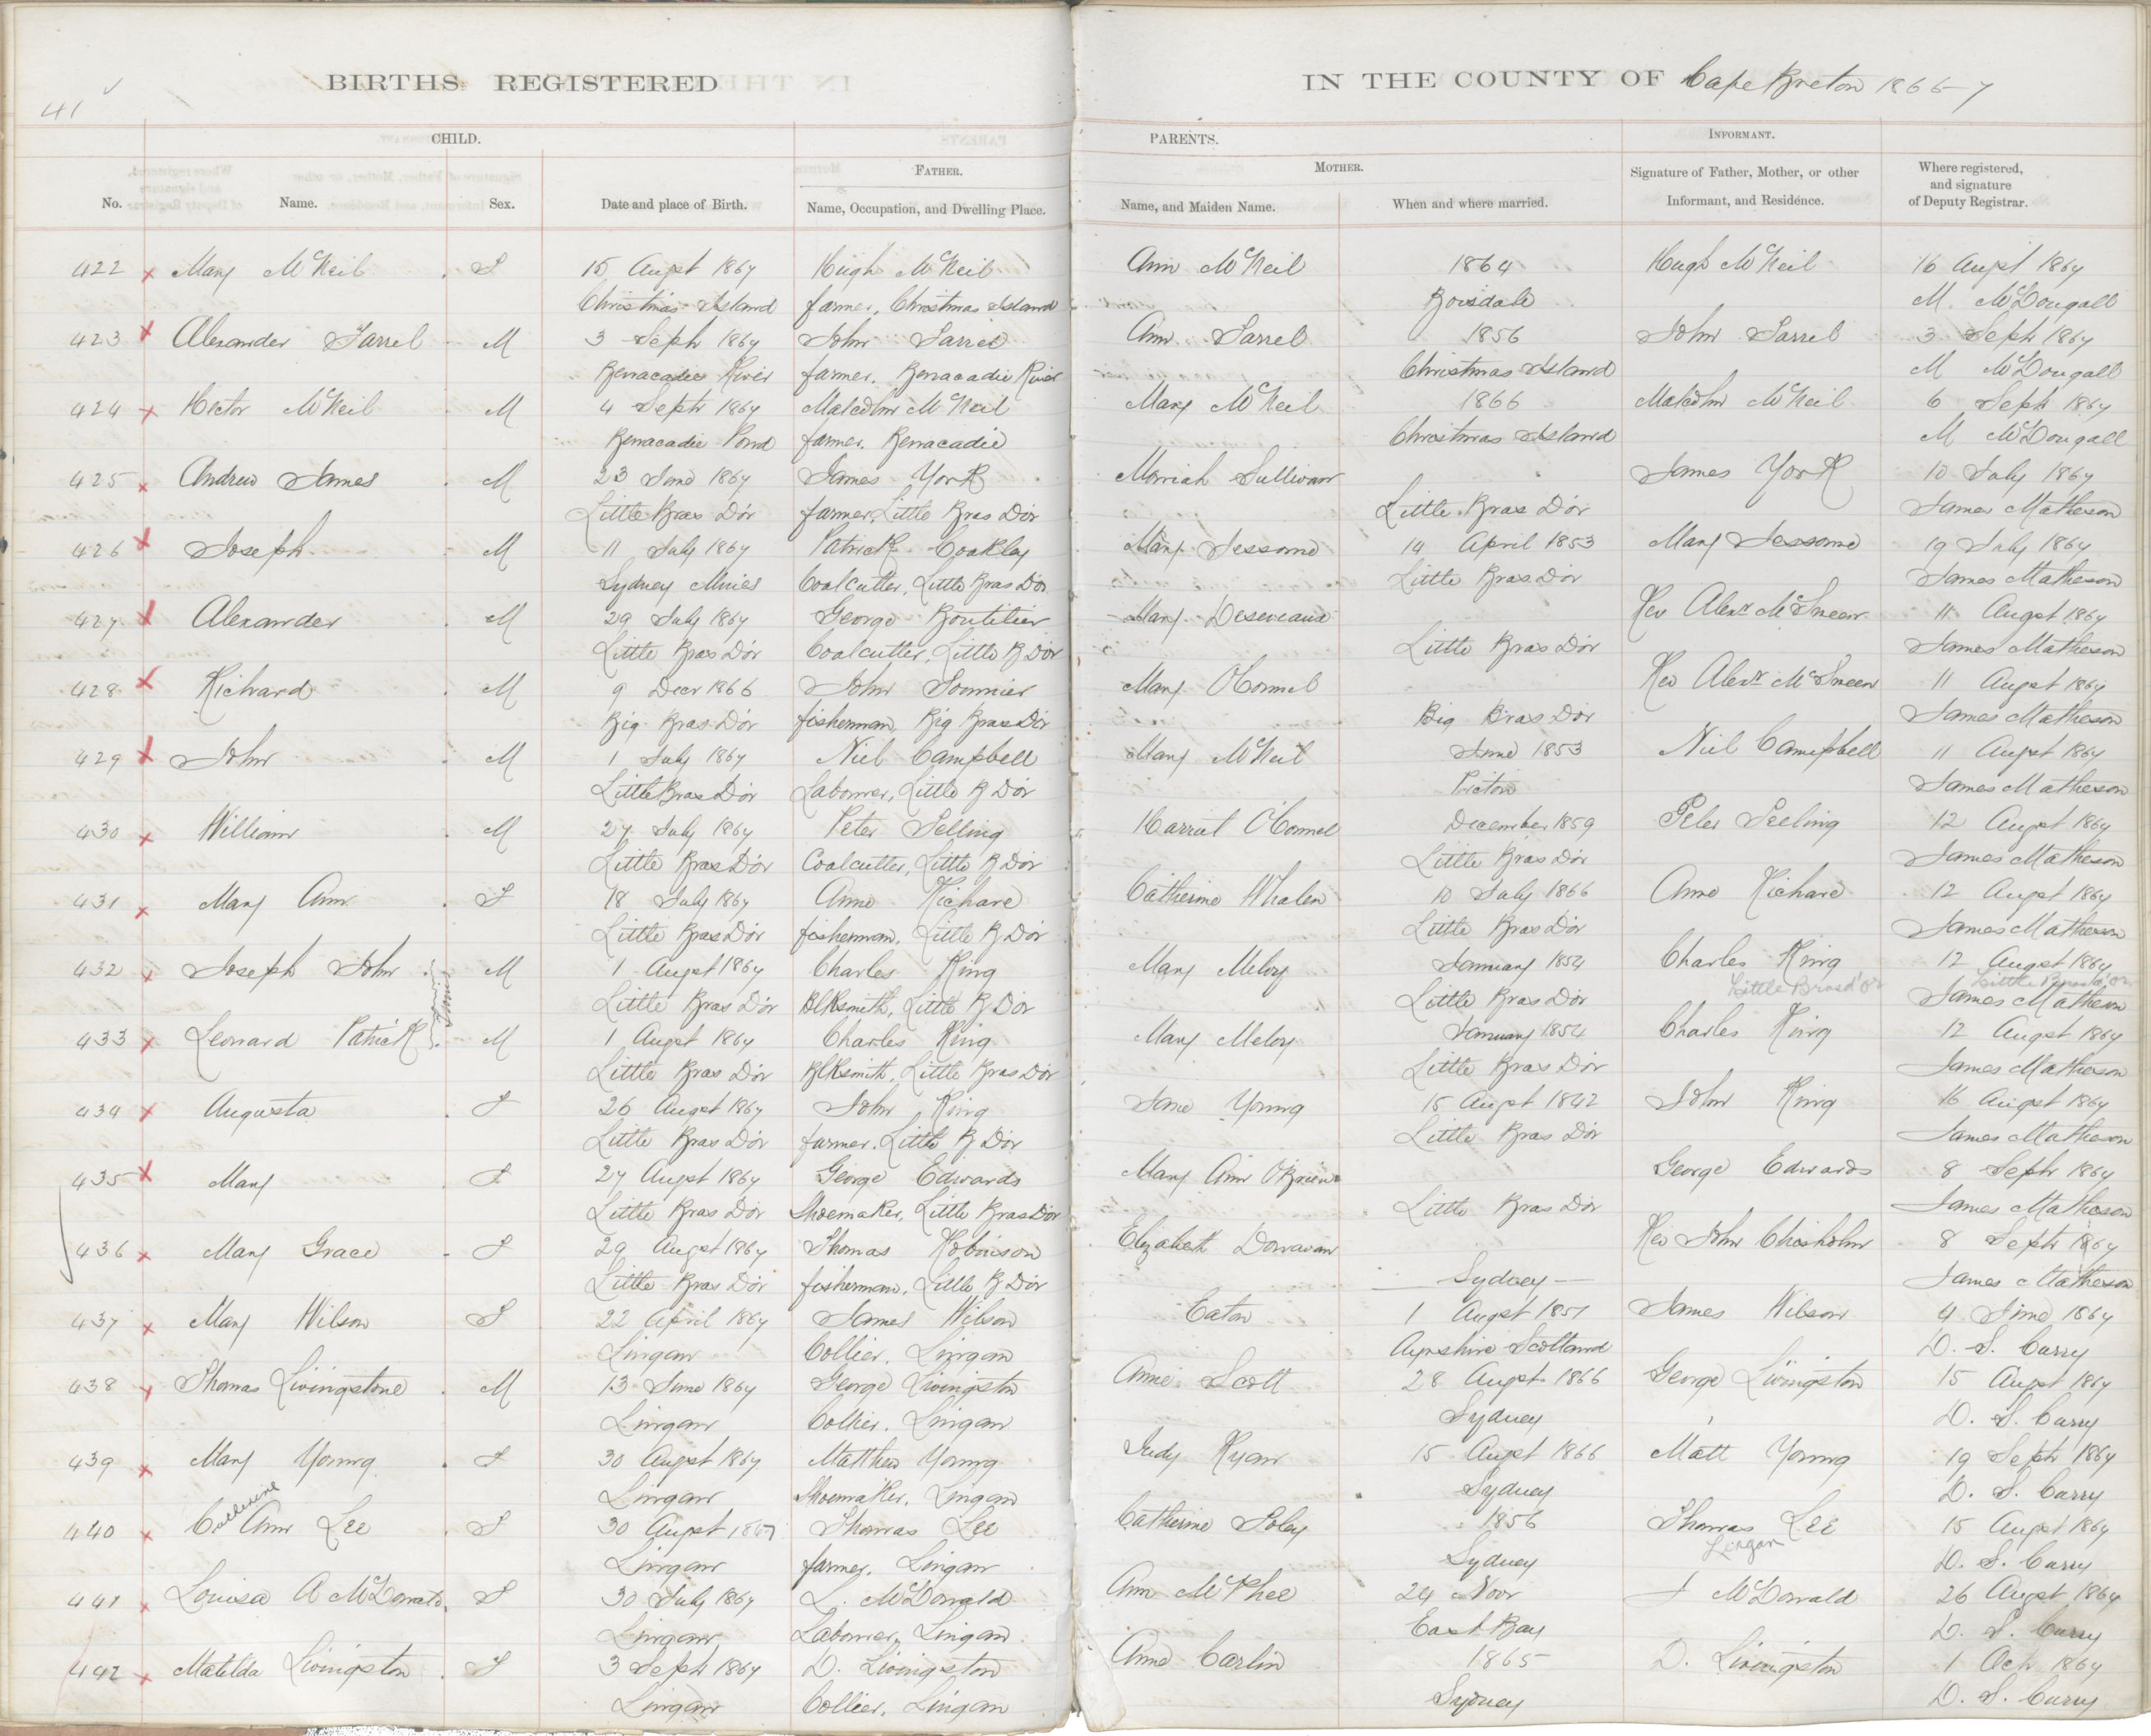 BIRTHS REGISTERED IN THE COUNTY OF Cape Breton 1866-7
41
CHILD. PARENTS. INFORMANT.
FATHER. MOTHER.
No. Name. Sex. Date and place of Birth. Name, Occupation, and Dwelling Place. Name, and Maiden Name. When and where married. Signature of Father, Mother, or other Informant, and Residence. Where registered, and signature of Deputy Registrar.
422 Mary McNeil F 15 Augst 1867 Hugh McNeil Ann McNeil 1864 Hugh McNeil 16 Augst 1867
Christmas Island farmer, Christmas Island Boisdale M. McDougall
423 Alexander Farrel M 3 Septr 1867 John Farrel Ann Farrel 1856 John Farrel 3 Septr 1867
Benacadie River farmer, Benacadie River Christmas Island M McDougall
424 Hector McNeil M 4 Septr 1867 Malcolm McNeil Mary McNeil 1866 Malcolm McNeil 6 Septr 1867
Benacadie Pond farmer, Benacadie Christmas Island M McDougall
425 Andrew James M 23 June 1867 James York Morriah Sullivan James York 10 July 1867
Little Bras Dór farmer, Little Bras Dór Little Bras Dór James Matheson
426 Joseph M 11 July 1867 Patrick Coakley Mary Jessome 14 April 1853 Mary Jessome 19 July 1867
Sydney Mines Coalcutter, Little Bras Dór Little Bras Dór James Matheson
427 Alexander M 29 July 1867 George Boutilier Mary Deseveaux Rev Alexr 11 Augst 1867
Little Bras Dór Coalcutter, Little B Dór Little Bras Dór James Matheson
428 Richard M 9 Decr 1866 John Mary OConnel Rev Alexr 11 Augst 1867
Big Bras Dór fisherman, Big Bras Dór Big Bras Dór James Matheson
429 John M 1 July 1867 Niel Campbell Mary McNeil June 1853 Niel Campbell 11 Augst 1867
Little Bras Dór Labourer, Little B Dór Pictou James Matheson
430 William M 27 July 1867 Peter Selling Harriet OConnel December 1859 Peter Seeling 12 Augst 1867
Little Bras Dór Coalcutter, Little B Dór Little Bras Dór James Matheson
431 Mary Ann F 18 July 1867 Anne Richard Catherine Whalen 10 July 1866 Anne Richard 12 Augst 1867
Little Bras Dór fisherman, Little B Dór Little Bras Dór James Matheson
432 Joseph John M 1 Augst 1867 Charles King Mary Meloy January 1854 Charles King 12 Augst 1867
Little Bras Dór Blksmith, Little B Dór Little Bras Dór Little Bras d'or Little Bras d'or James Matheson
433 Leonard Patrick Twins M 1 Augst 1867 Charles King Mary Meloy January 1854 Charles King 12 Augst 1867
Little Bras Dór Blksmith, Little Bras Dór Little Bras Dór James Matheson
434 Augusta F 26 Augst 1867 John King Jane Young 15 Augst 1842 John King 16 Augst 1867
Little Bras Dór farmer, Little B Dór Little Bras Dór James Matheson
435 Mary F 27 Augst 1867 George Edwards Mary Ann OBrien George Edwards 8 Septr 1867
Little Bras Dór Shoemaker, Little Bras Dór Little Bras Dór James Matheson
436 Mary Grace F 29 Augst 1867 Thomas Robinson Elizabeth Donavan Rev John Chisholm 8 Septr 1867
Little Bras Dór fisherman, Little B Dór Sydney James Matheson
437 Mary Wilson F 22 April 1867 James Wilson Eaton 1 Augst 1851 James Wilson 4 June 1867
Lingan Collier, Lingan Ayrshire Scotland D. S. Curry
438 Thomas Livingstone M 13 June 1867 George Livingston Annie Scott 28 Augst 1866 George Livingston 15 Augst 1867
Lingan Collier, Lingan Sydney D. S. Curry
439 Mary Young F 30 Augst 1867 Matthew Young Judy Ryan 15 Augst 1866 Matt Young 19 Septr 1867
Lingan Shoemaker, Lingan Sydney D. S. Curry
440 Catherine Ann Lee F 30 Augst 1867 Thomas Lee Catherine Foley 1856 Thomas Lee 15 Augst 1867
Lingan farmer, Lingan Sydney Lingan D. S. Curry
441 Louisa A McDonald F 30 July 1867 L. McDonald Ann McPhee 24 Novr McDonald 26 Augst 1867
Lingan Labourer, Lingan East Bay D. S. Curry
442 Matilda Livingston F 3 Septr 1867 D. Livingston Anne Carlin 1865 D. Livingston 1 Octr 1867
Lingan Collier, Lingan Sydney D. S. Curry